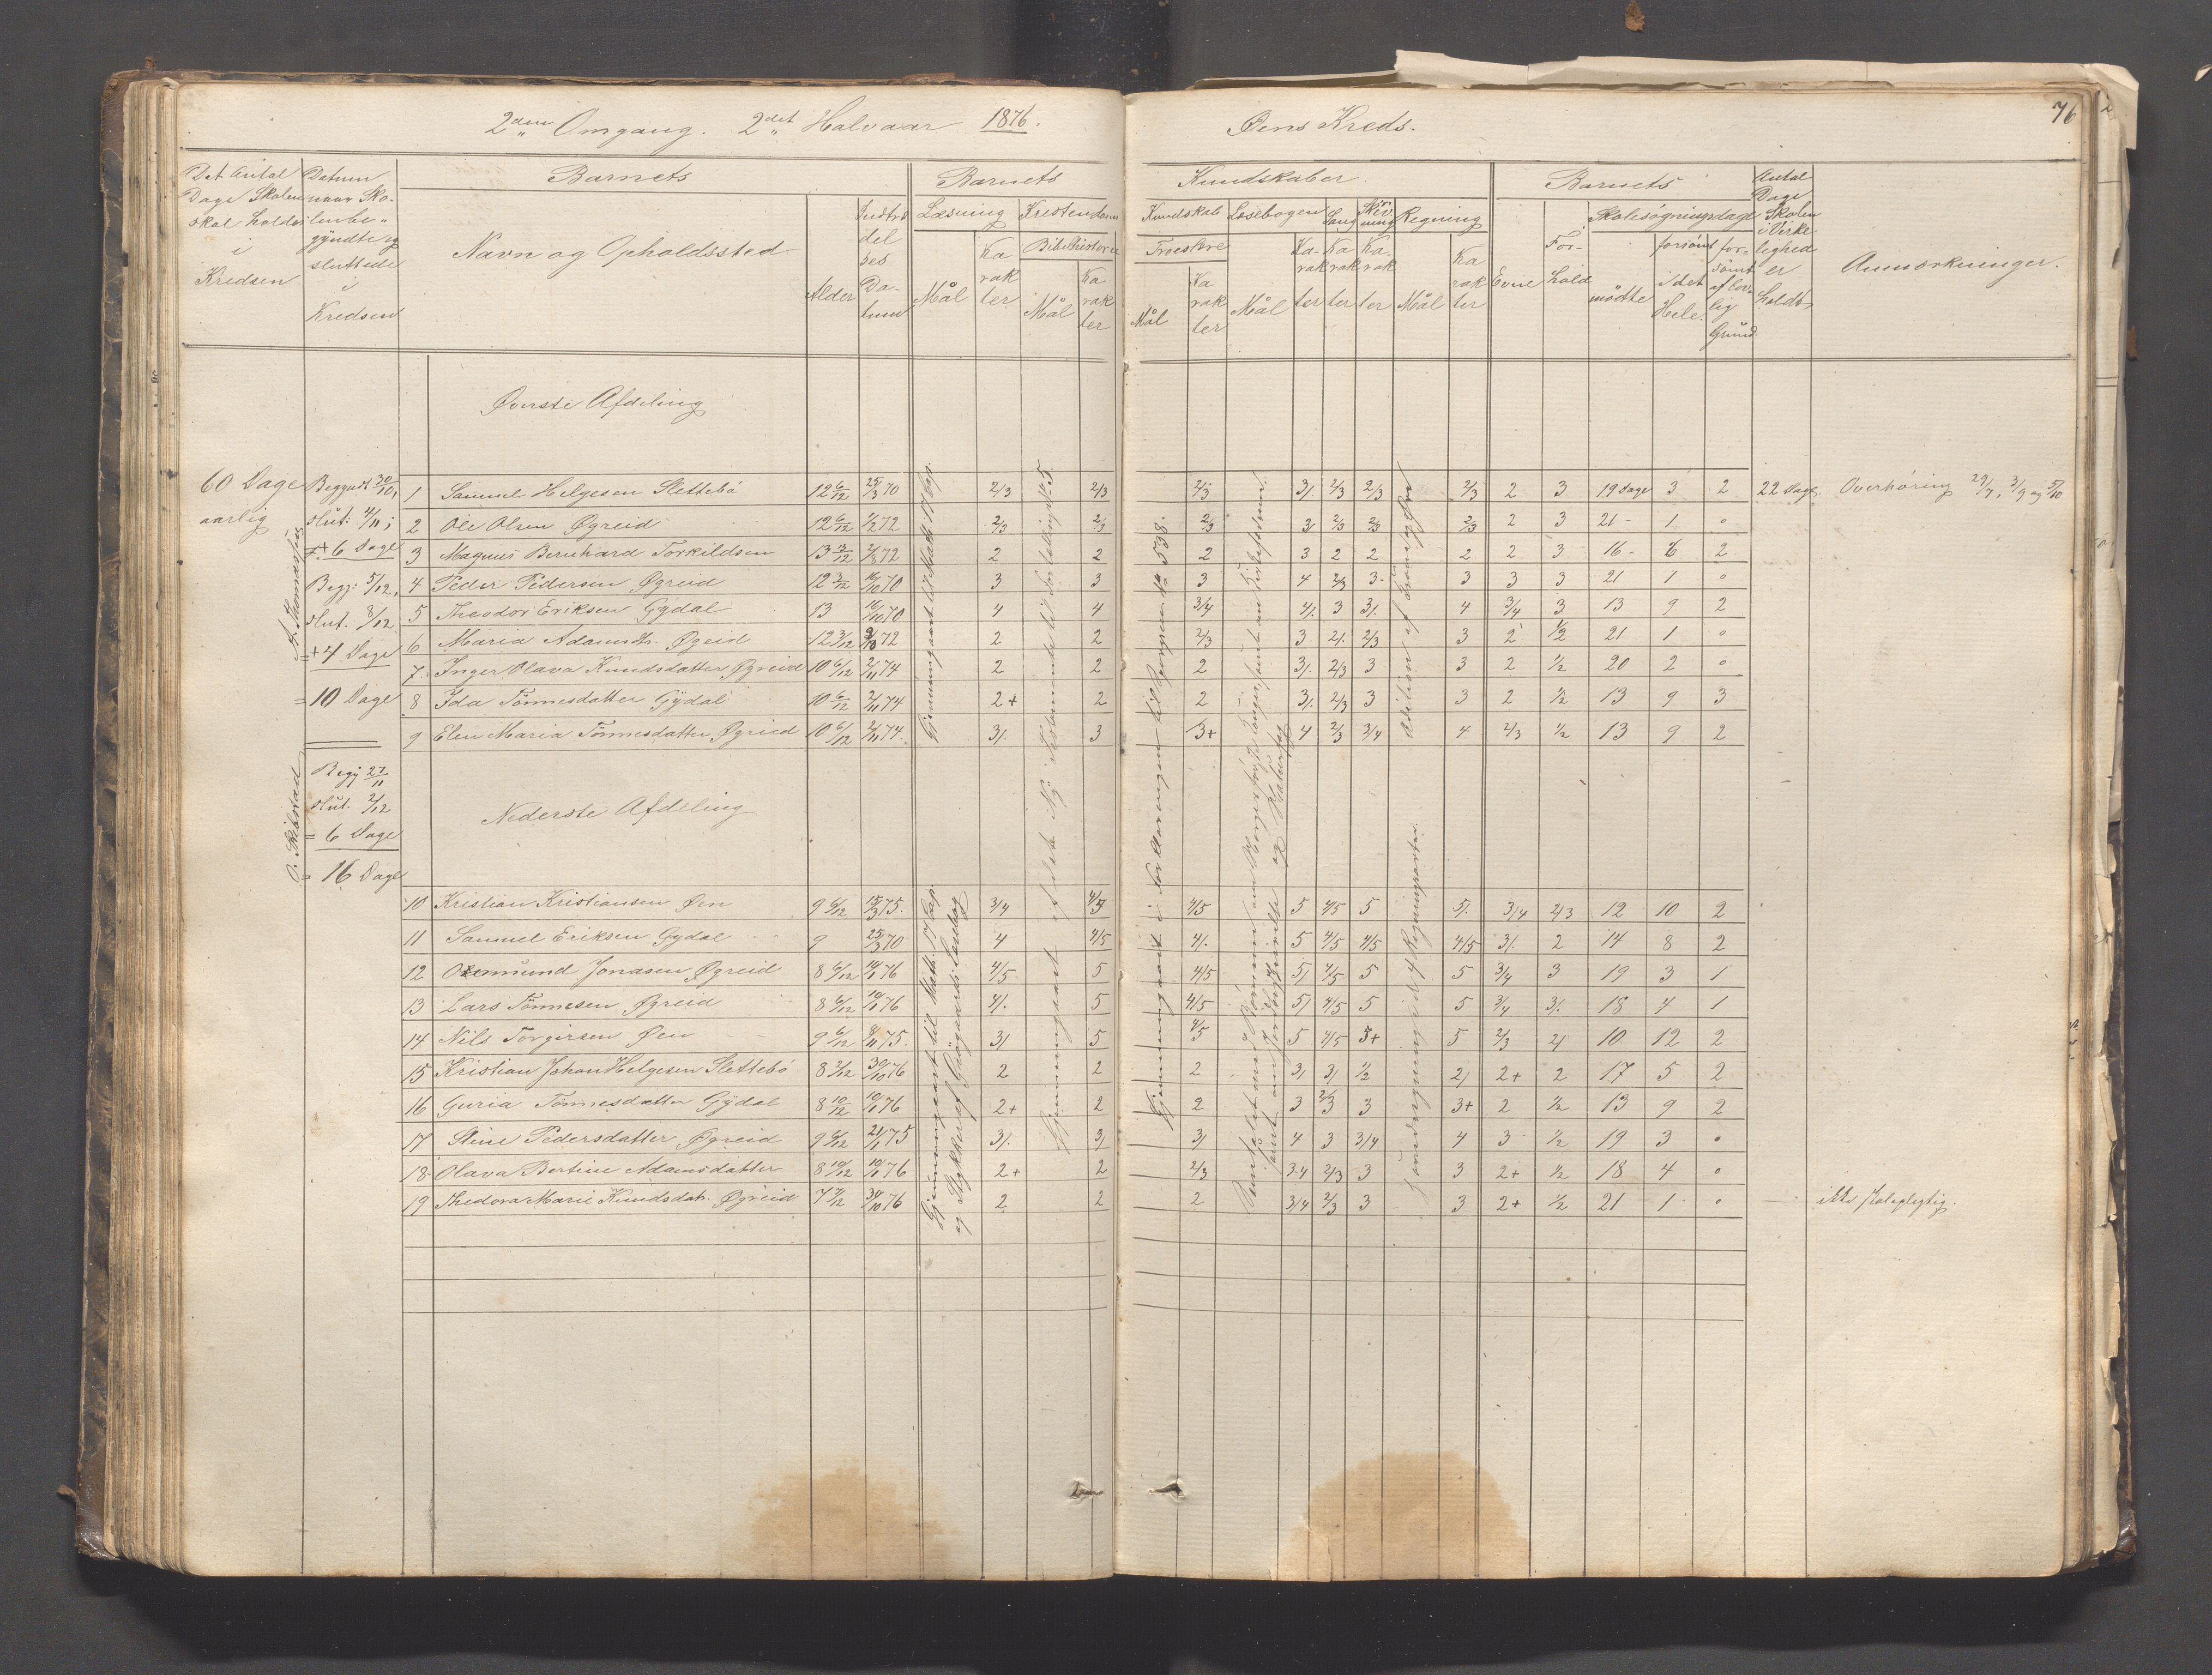 2den Omgang. 2det Halvaar 1876.
Øens Kreds.
76
Det Antal Dage Skolen skal holdes i Kredsen
Datum naar Skolen begyndte og sluttede i Kredsen
Barnets
Navn og Opholdssted
Alder
Indtrædelses Datum
Barnets
Kundskaber
Læsning
Mål
Karakter
Kristendom
Bibelhistorie
Mål
Karakter
Kundskab
Troeslære
Mål
Karakter
Læsebogen
Mål
Karakter
Sang
Karakter
Skrivning
Karakter
Regning
Mål
Karakter
Barnets
Evne
Forhold
Skolesøgningsdage
mødte
forsømt i det Hele
forsømt af lovlig Grund
Antal Dage Skolen i Virkelighed er holdt
Anmærkninger.
Øverste Afdeling
60 Dage aarlig
Begyndt 30/10,
slut: 4/11;
= 6 Dage
Begy: 5/12,
slut. 8/12
= 4 Dage
= 10 Dage
Begy 27/11
slut. 2/12
= 6 Dage
= 16 Dage
1 Samuel Helgesen Slettebø 12 6/12 25/3 70 2/3 2/3 2/3 3/ 2/3 2/3 2/3 2 3 19 Dage 3 2 22 Dage Overhøring 29/7, 3/9 og 5/10
2 Ole Olsen Øgreid 12 6/12 1/2 72 2/3 2/3 2/3 3/ 2/3 2/3 2/3 2 3 21 - 1 0
3 Magnus Bernhard Torkildsen 13 2/8 72 2 2 2 3 2 2 2 2 3 16 - 6 2
4 Peder Pedersen Øgreid 12 3/12 10/10 70 3 3 3 4 2/3 3 3 3 3 21 1 0
5 Theodor Eriksen Gydal 13 16/10 70 4 4 3/4 4/. 3 3/. 4 3/4 3 13 9 2
6 Maria Adamsdtr. Øgeid 12 3/12 72 2 2 2/3 3 2/. 2/3 3 2 1/2 21 1 0
7 Inger Olava Knudsdatter Øgreid 10 6/12 2/11 74 2 2 2 3/. 2/3 3 3 2 1/2 20 2 0
8 Ida Tønnesdatter Gydal 10 6/12 2/11 74 2+ 2 2 3/. 2/3 3 3 2 1/2 13 9 3
9 Elen Maria Tønnesdatter Øgried 10 6/12 2/11 74. 3/. 3 3+ 4 2/3 3/4 4 2/3 1/2 13 9 2
Nederste Afdeling
10 Kristian Kristiansen Øen 9 6/12 15/3 75. 3/4 4/5 4/5 5 4/5 5 5/. 3/4 2/3 12 10 2
11 Samuel Eriksen Gydal 9 25/3 70 4 4/5 4/. 5 4/5 4/5 4/5 3/. 2 14 8 2
12 Osmund Jonasen Øgreid 8 6/12 10/1 76 4/5 5 4/5 5/ 4/5 5 5 3/4 3 19 3 1
13 Lars Tønnesen Øgreid 8 6/12 10/1 76 4/. 5 4/5 5/ 4/5 5 5 3/4 3/. 18 4 1
14 Nils Torgirsen Øen 9 6/12 8/11 75. 3/ 5 4/5 5 4/5 5+ 5 2/3 2/ 10 12 2
15 Kristian Johan Helgesen Slettebø 8 2/12 30/10 76 2 2 2 3/ 3/ 1/2 2/ 2+ 2 17 5 2
16 Guria Tønnesdatter Gydal 8 10/12 10/1 76 2+ 2 2 3 2/3 3 3+ 2 1/2 13 9 2
17 Stine Pedersdatter Øgreid 9 6/12 21/1 75 3/. 3/ 3/ 4 3 3/4 4 3 1/2 19 3 0
18 Olava Bertine Adamsdatter 8 10/12 10/1 76 2+ 2 2/3 3-4 2/3 3 3 2+ 1/2 18 4 0
19 Thedora Marie Knudsdatr. Øgreid 7 7/12 30/10 76 2 2 2 3/4 2/3 3 3 2+ 1/2 21 1 0 ikke skolepligtig.